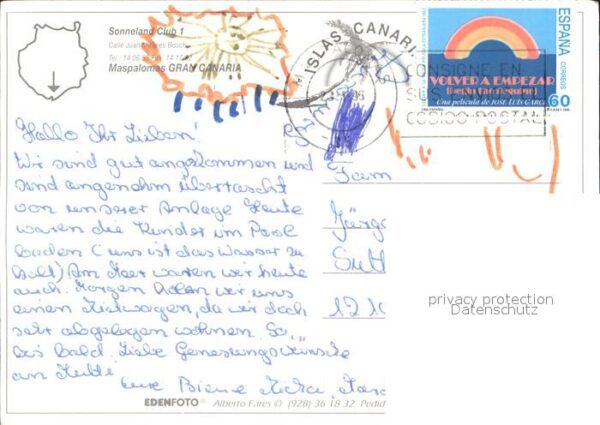 Sonneland Club 1
Maspalomas GRAN CANARIA
ISLAS CANARIA
CONSIGNE EN
SUS ENVIOS
CODIGO POSTAL
ESPAÑA
CORREOS
VOLVER A EMPEZAR
(begin the beguine)
Una película de JOSE LUIS GARCI
60
Hallo Ihr Lieben!
Wir sind gut angekommen und
sind angenehm überrascht
von unserer Anlage. Heute
waren die Kinder im Pool
baden (uns ist das Wasser zu
kalt) Am Meer waren wir heute
auch. Morgen holen wir uns
einen Mietwagen, da wir doch
sehr abgelegen wohnen. So,
bis bald. Liebe Genesungswünsche
an
Eure Biene
Fam
Jürg
privacy protection
Datenschutz
EDENFOTO Alberto Fares © (928) 36 18 32 Pedid